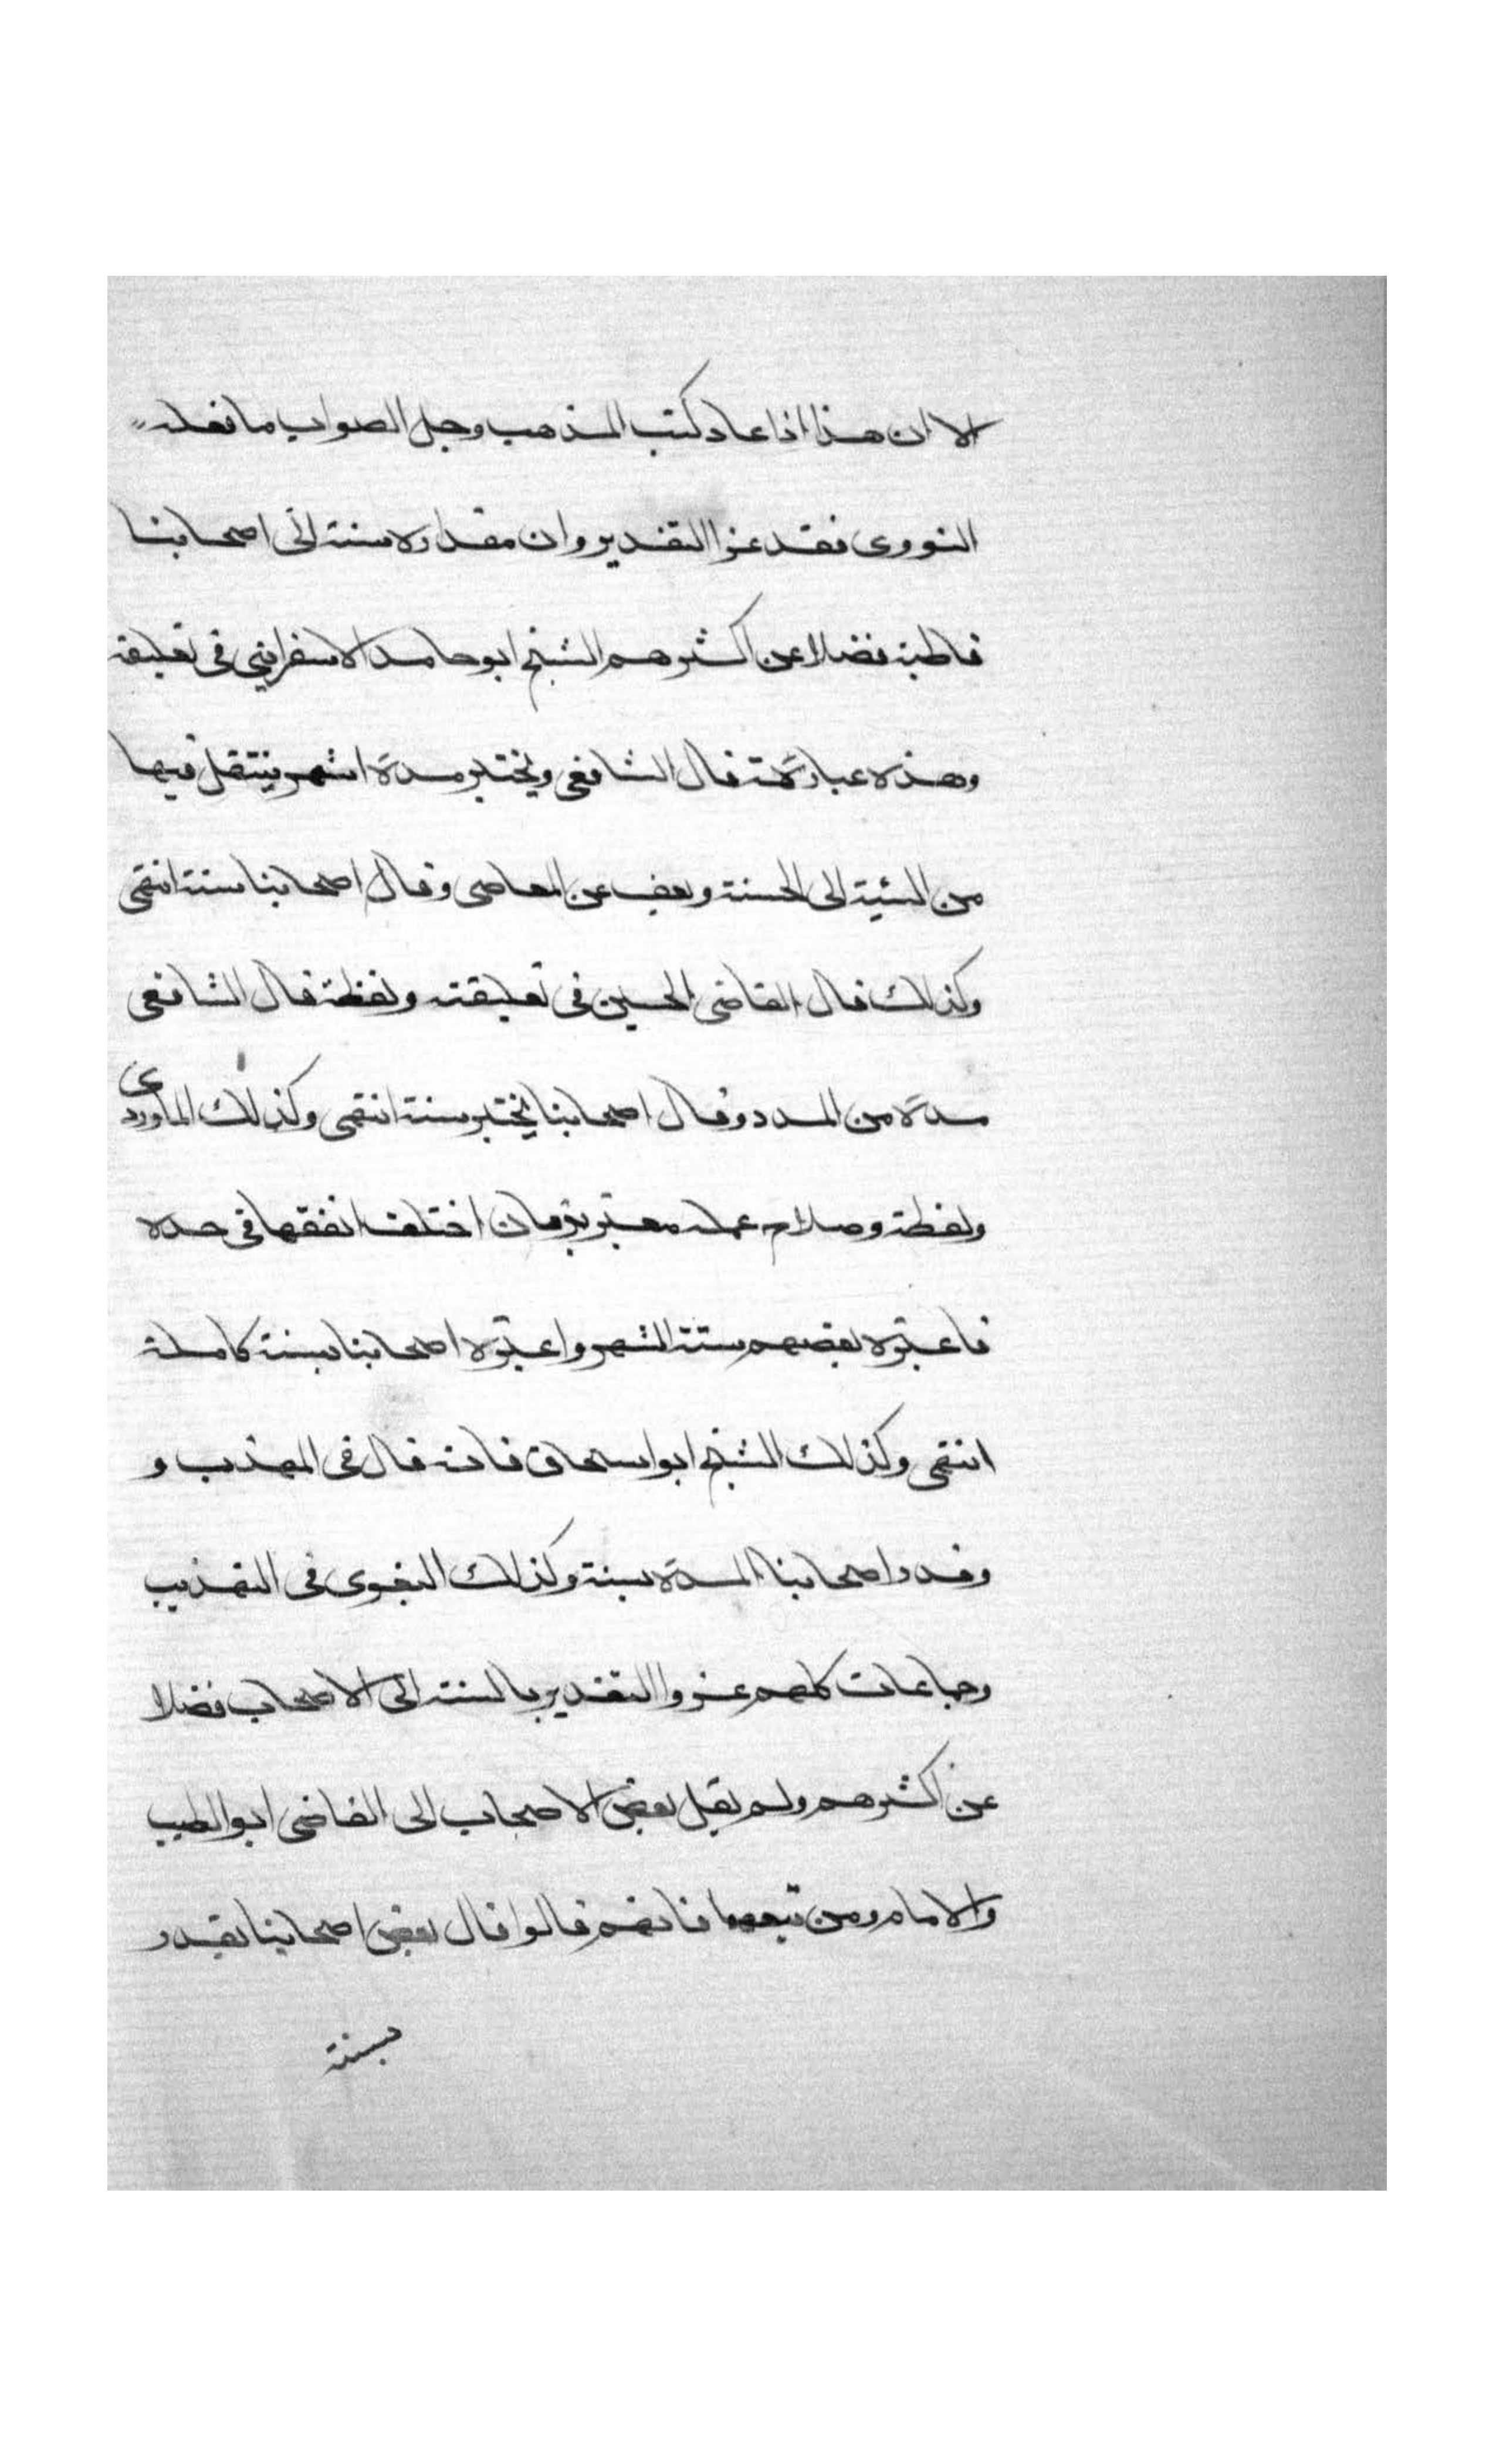 الا ان هذا اذا عاد كتب المذهب وجل الصواب ما فعله
النووى فقد عزا التقدير وان مقداره سنة الى اصحابنا
قاطبة فضلا عن اكثرهم الشيخ ابو حامد الاسفراينى فى تعليقه
وهذه عبارته قال الشافعى ويختبر مدة اشهر ينتقل فيها
من السئية الى الحسنة ويعف عن المعاصى وقال اصحابنا سنة انتهى
وكذلك قال القاضى الحسين فى تعليقته ولفظة قال الشافعى
مدة من المدد وقال اصحابنا يختبر سنة انتهى وكذلك الماوردى
ولفظة وصلاح عمله معتبر بزمان اختلف الفقها فى حده
فاعتبره بعضهم ستة اشهر واعتبره اصحابنا بسنة كاملة
انتهى وكذلك الشيخ ابو اسحاق فانه قال فى المهذب و
وقدر اصحابنا المدة بسنة وكذلك البغوى فى التهذيب
وجماعات كلهم عزوا التقدير بالسنة الى الاصحاب فضلا
عن اكثرهم ولم يقل بعض الاصحاب الى القاضى ابو الطيب
والامام ومن تبعهما فانهم قالوا قال بعض اصحابنا يقدر
بسنة